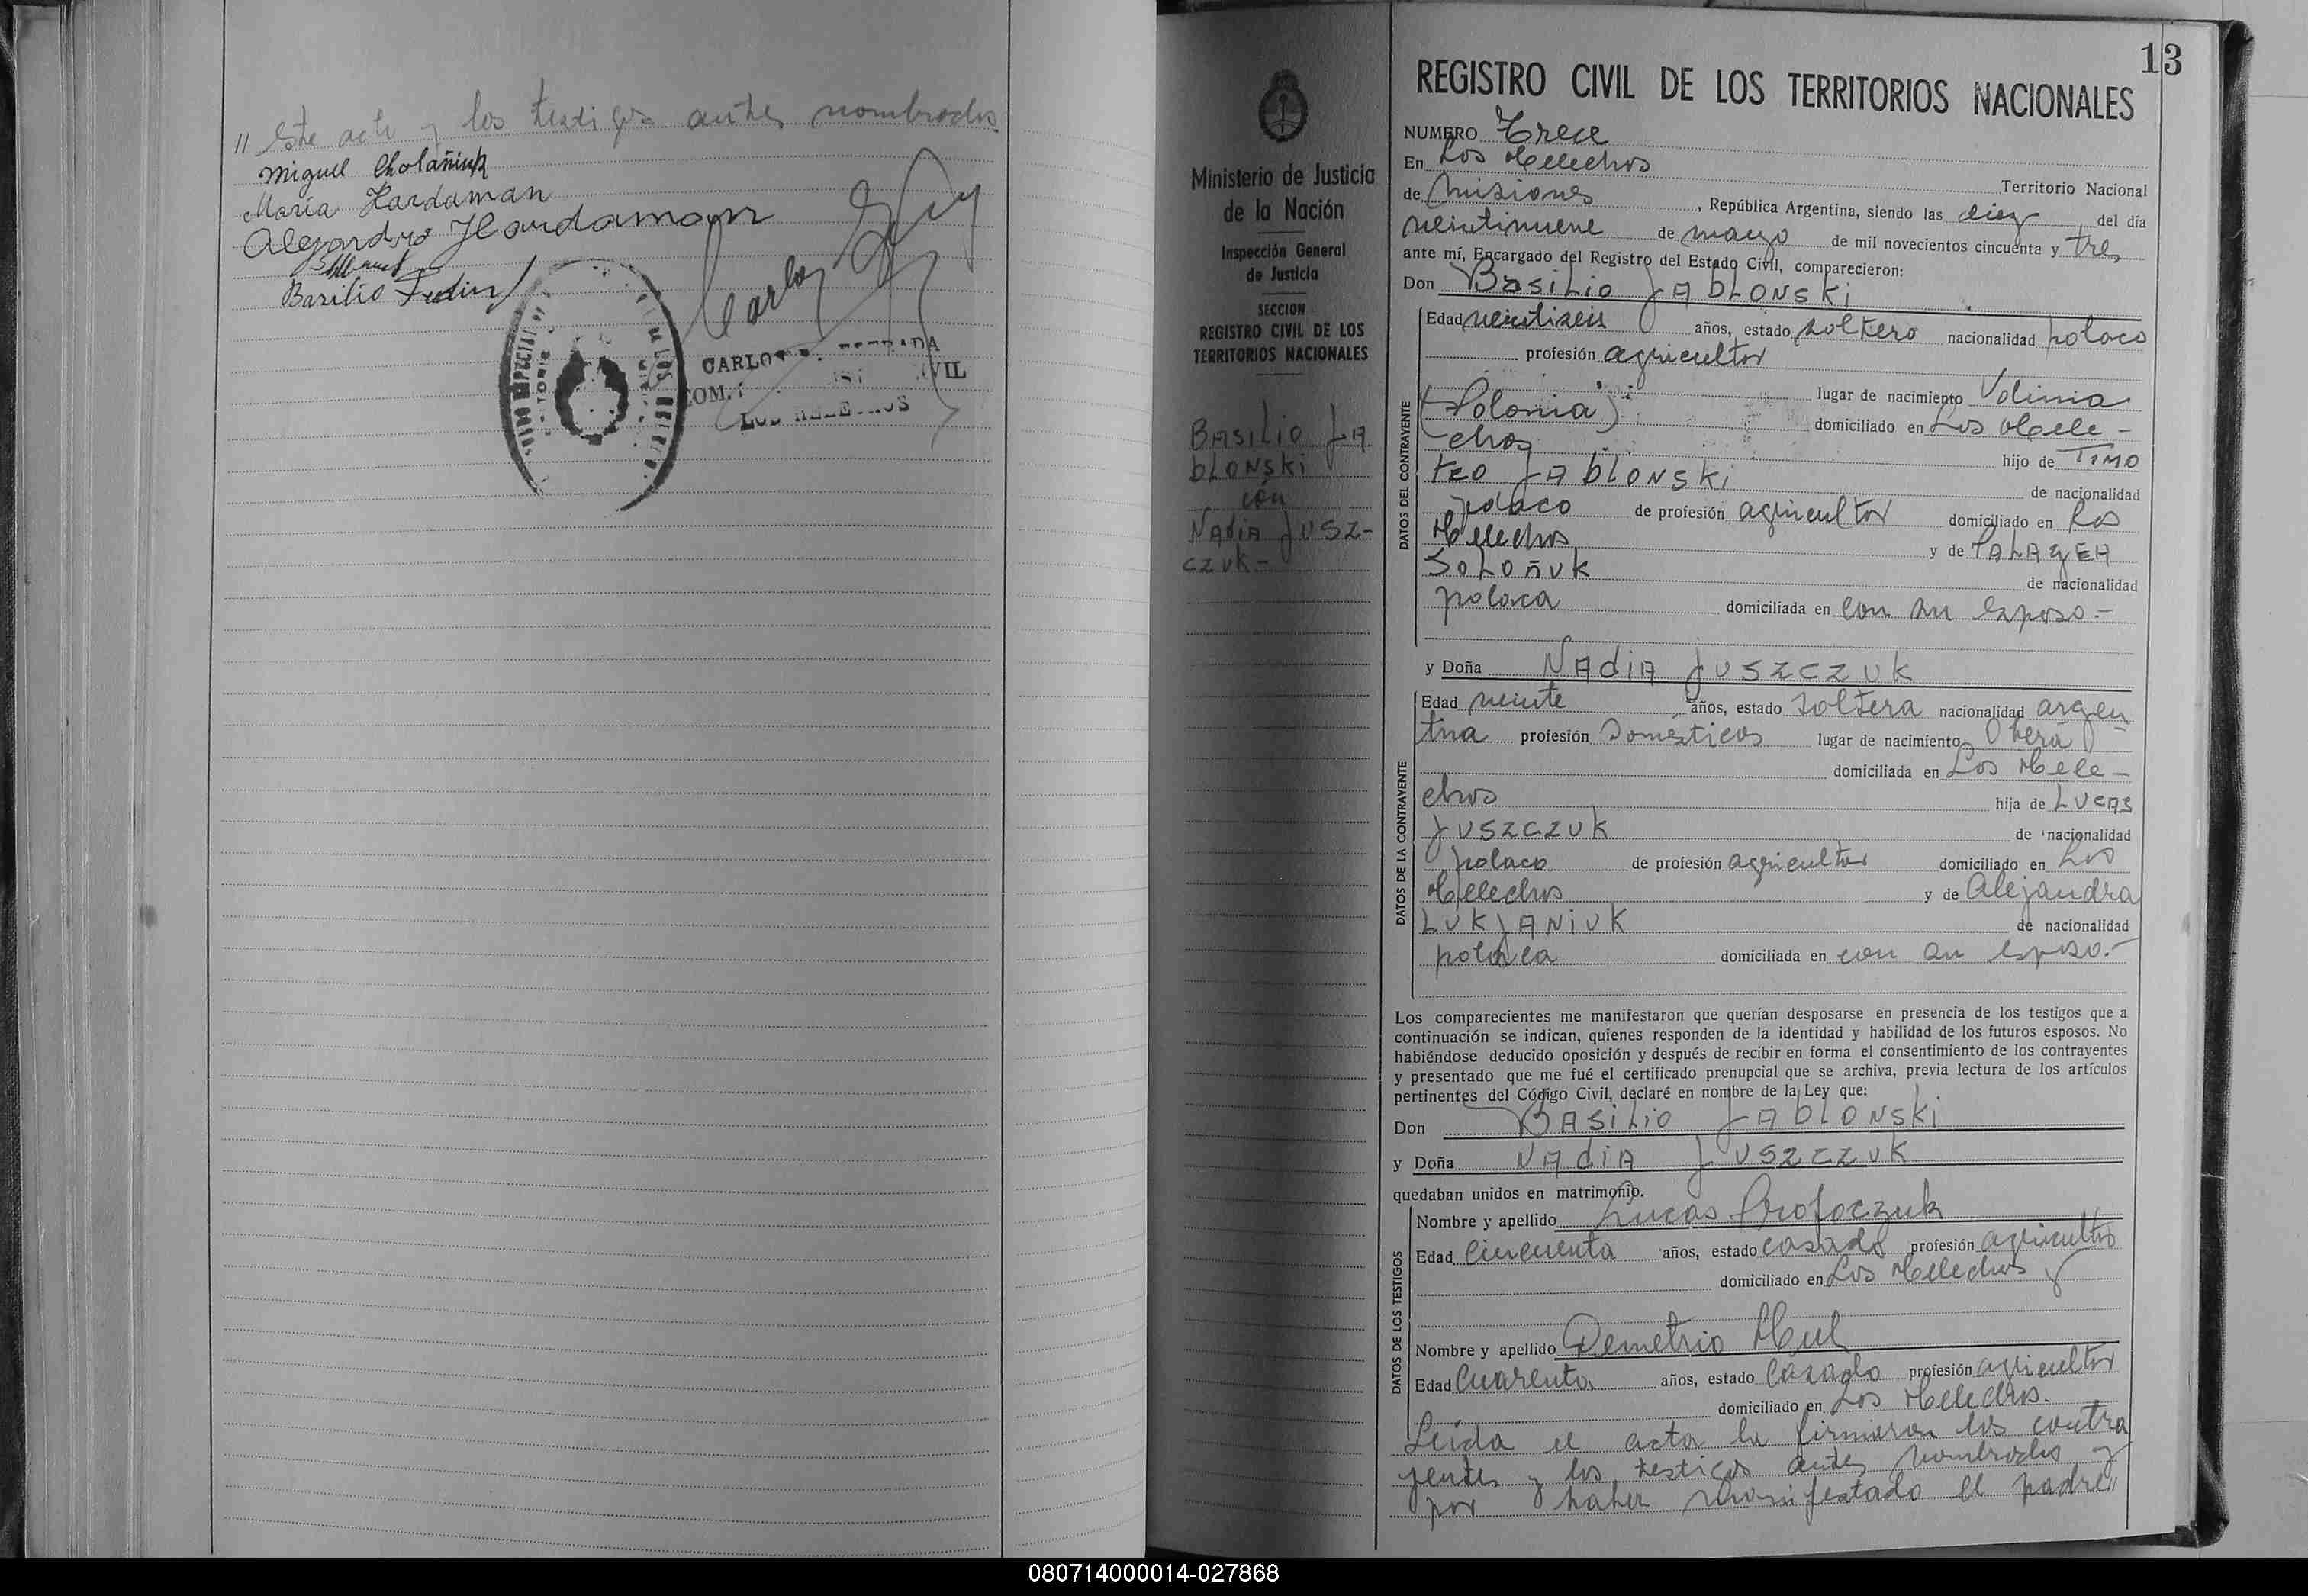 // Este acto y los testigos antes nombrados.
Miguel Cholañiuk
María Hardaman
Alejandro Hardamann
Basilio Fedin
Carlos
CARLOS
LOS HELECHOS
13
REGISTRO CIVIL DE LOS TERRITORIOS NACIONALES
Ministerio de Justicia
de la Nación
Inspección General
de Justicia
SECCION
REGISTRO CIVIL DE LOS
TERRITORIOS NACIONALES
BASILIO JA
bLONSKi
con
NAdiA JUSZ-
CZUK-
NUMERO Trece
En Los Helechos
Territorio Nacional
de Misiones, República Argentina, siendo las diez del día
veintinueve de mayo de mil novecientos cincuenta y tres
ante mí, Encargado del Registro del Estado Civil, comparecieron:
Don BASiLiO JAbLONSKi
DATOS DEL CONTRAYENTE
Edad veintiseis años, estado soltero nacionalidad polaco
profesión agricultor
lugar de nacimiento Volinia
(Polonia) domiciliado en Los Hele-
chos hijo de TIMO
TEO JAbLONSKi de nacionalidad
polaco de profesión agricultor domiciliado en Los
Helechos y de PALAGEA
SOLOÑUK de nacionalidad
polaca domiciliada en con su esposo.-
y Doña NAdiA JUSZCZUK
DATOS DE LA CONTRAYENTE
Edad veinte años, estado soltera nacionalidad argen
tina profesión Domésticos lugar de nacimiento Oberá
domiciliada en Los Hele-
chos hija de LUCAS
JUSZCZUK de nacionalidad
polaco de profesión agricultor domiciliado en Los
Helechos y de Alejandra
LUKJANiUK de nacionalidad
polaca domiciliada en con su esposo.-
Los comparecientes me manifestaron que querían desposarse en presencia de los testigos que a
continuación se indican, quienes responden de la identidad y habilidad de los futuros esposos. No
habiéndose deducido oposición y después de recibir en forma el consentimiento de los contrayentes
y presentado que me fué el certificado prenupcial que se archiva, previa lectura de los artículos
pertinentes del Código Civil, declaré en nombre de la Ley que:
Don BASiLiO JAbLONSKi
y Doña NAdiA JUSZCZUK
quedaban unidos en matrimonio.
DATOS DE LOS TESTIGOS
Nombre y apellido Lucas Profoczuk
Edad Cincuenta años, estado casado profesión agricultor
domiciliado en Los Helechos y
Nombre y apellido Demetrio Hul
Edad Cuarenta años, estado Casado profesión agricultor
domiciliado en Los Helechos.
Leída el acta la firmaron los contra
yentes y los testigos antes nombrados y
por haber manifestado el padre//
080714000014-027868